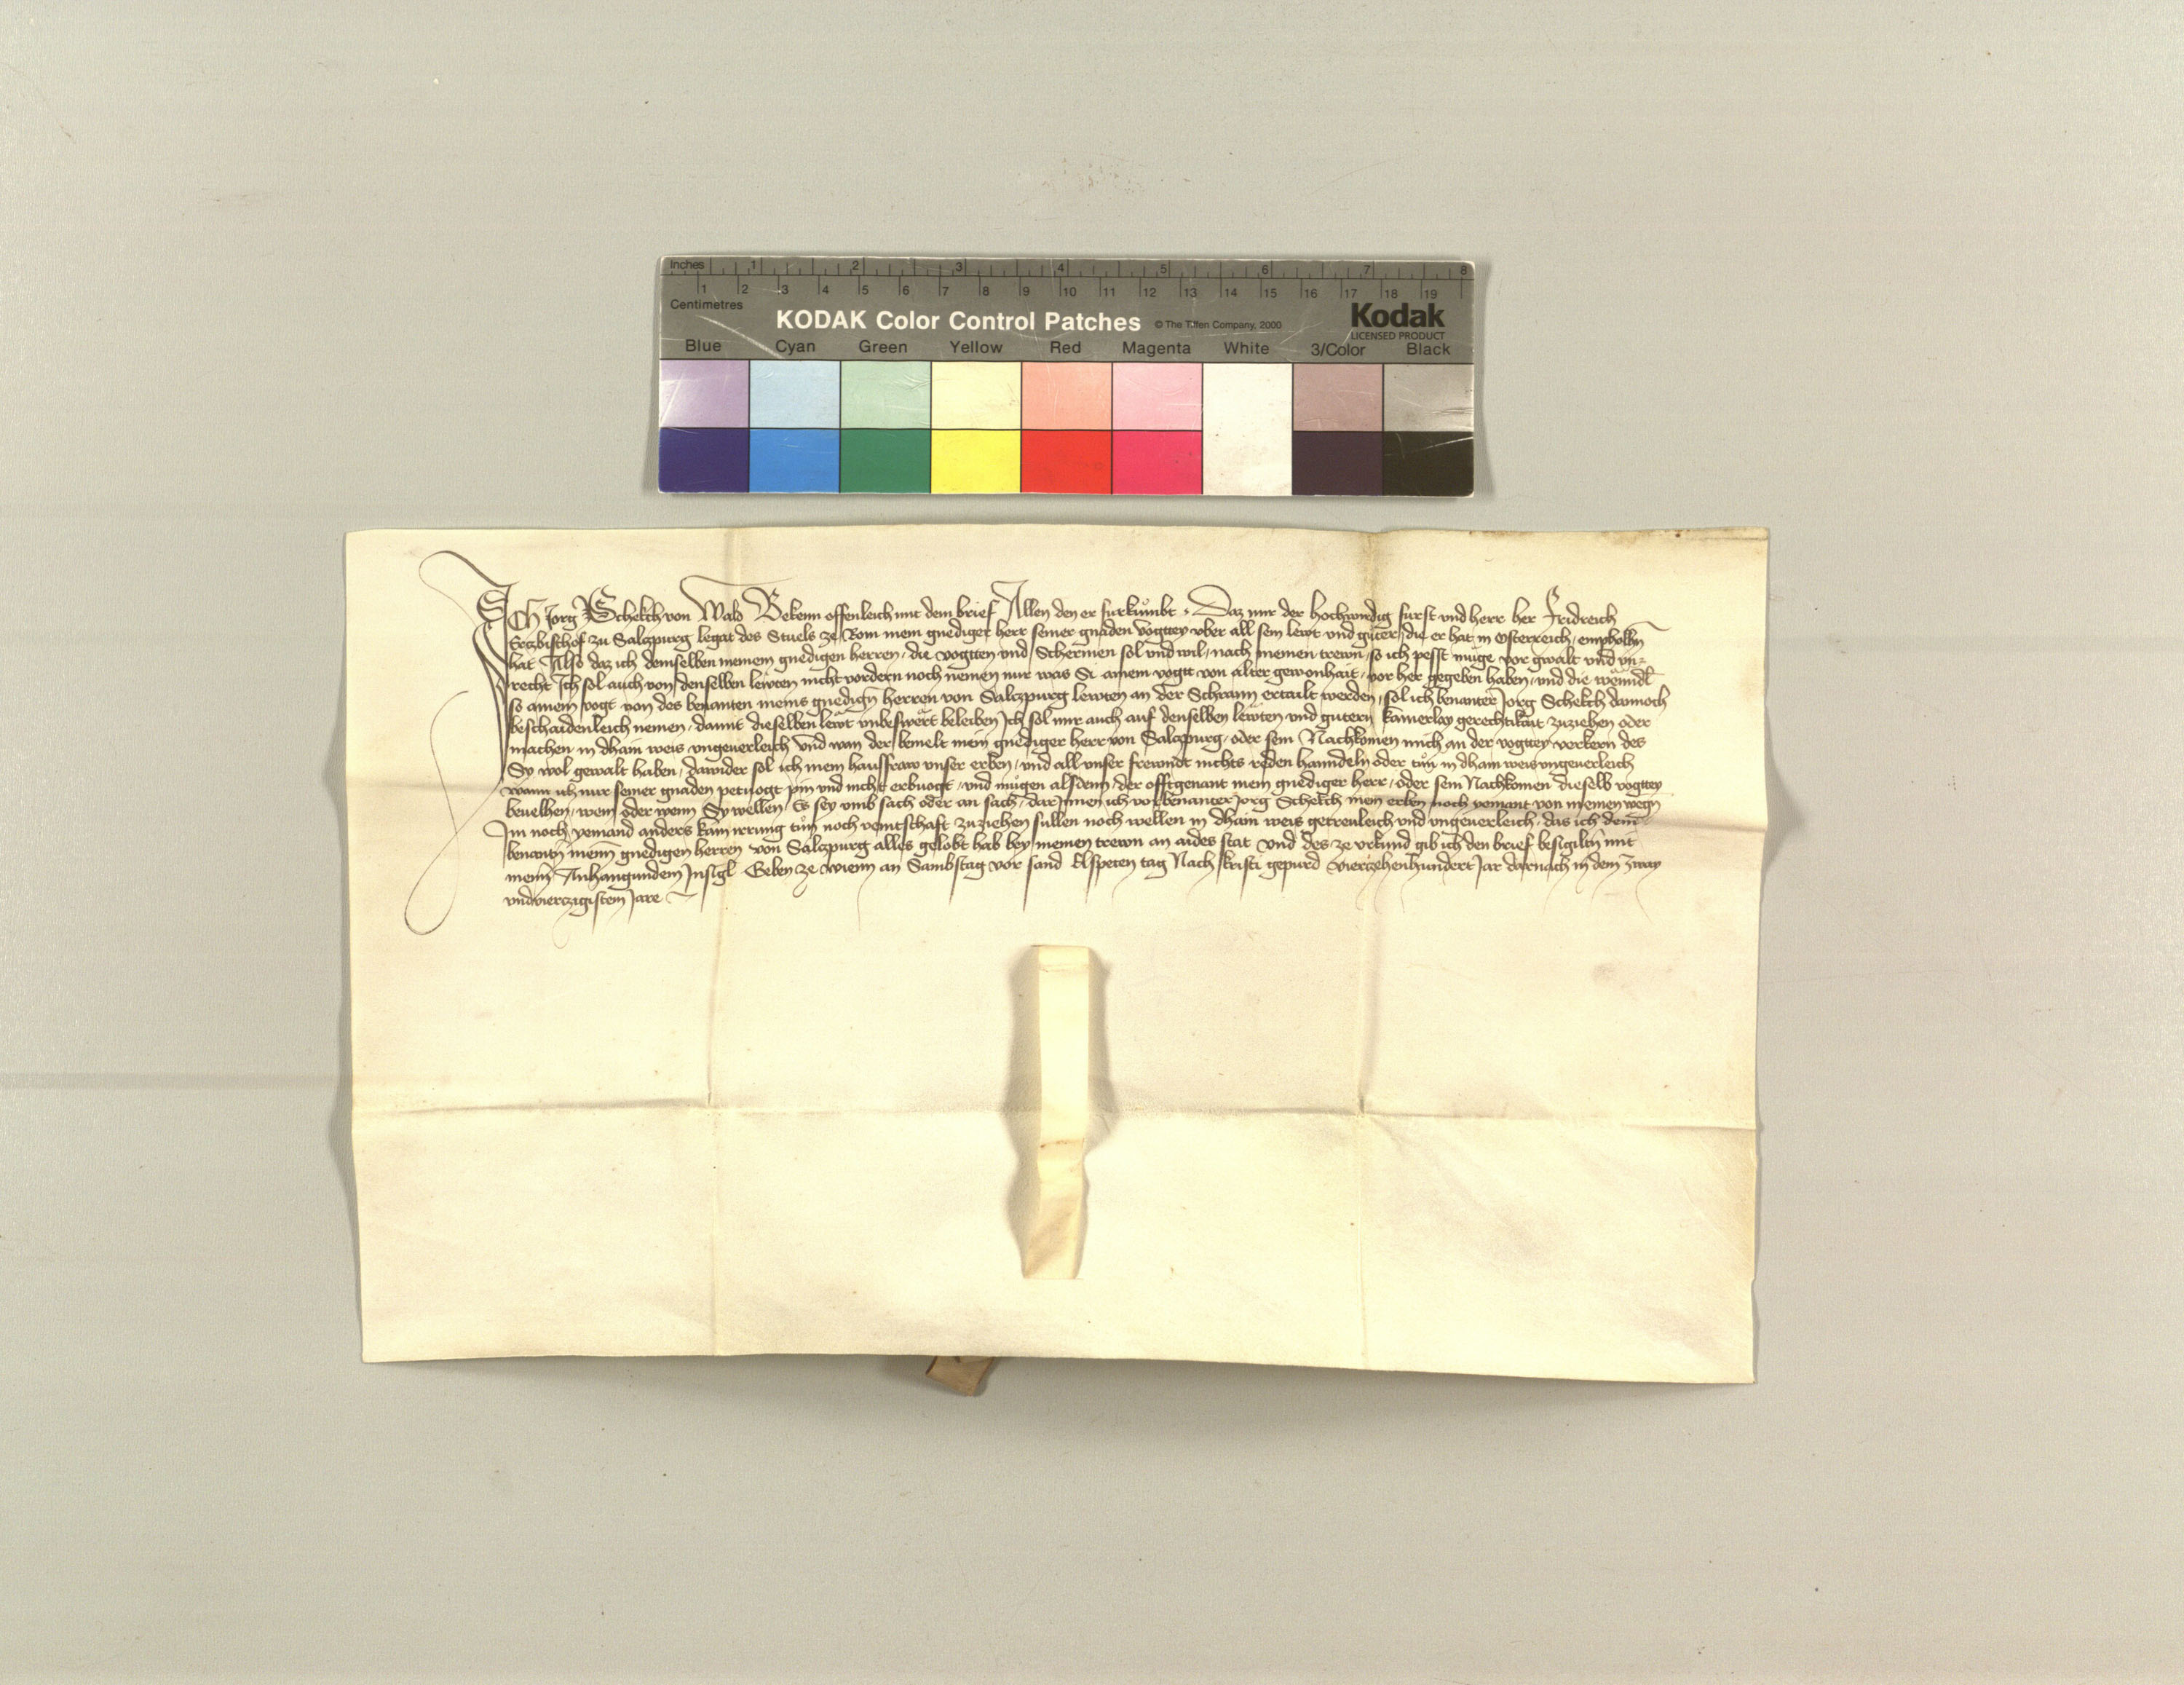 Inches 1 2 3 4 5 6 7 8
1 2 3 4 5 6 7 8 9 10 11 12 13 14 15 16 17 18 19
Centimetres
KODAK Color Control Patches © The Tiffen Company, 2000 Kodak
LICENSED PRODUCT
Blue Cyan Green Yellow Red Magenta White 3/Color Black
Ich Jorg Schekch von Wald Bekenn offenleich mit dem brief Allen den er furkumbt. Daz mir der hochwirdig furst und herr her Fridreich
Ertzbischof zu Salczpurg legat des Stuels ze Rom mein gnediger herr seiner gnaden vogttey vber all sein lewt und guter, die er hat in Osterreich, empholhn
hat Also daz ich demselben meinem gnedigen herren, die vogtten und Schermen sol und wil, nach meinen trewn, so ich pesst muge vor gwalt und vn-
recht Ich sol auch von denselben lewten nicht vordern noch nemen nur was Si ainem vogtt von alter gewonhait, vor her gegeben haben, und die wenndl
so ainem vogt von des benanten meins gnedign herren von Salczpurg lewten an der Schrann ertailt werden, sol ich benanter Jorg Schekch dannoch
beschaidenleich nemen, damit dieselben lewt unbeswert beleiben Ich sol mir auch auf denselben lewten und gutern kainerlay gerechtikait zuziehen oder
machen in dhain weis vngeuerleich Und wan der bemelt mein gnediger herr von Salczpurg, oder sein Nachkomen mich an der vogttey verkern des
Sy wol gewalt haben, dawider sol ich mein hausfraw vnser erben, und all vnser frewndt nichts reden hanndeln oder tun in dhain weis vngeuerleich
wann ich nur seiner gnaden petuogt pin und nicht erbuogt, und mugen alsdenn, der offtgenant mein gnediger herr, oder sein Nachkomen dieselb vogttey
beuelhen, wem oder wenn Sy wellen, Es sey umb sach oder an sach, dar Innen ich vorbenanter Jorg Schekch mein erben noch yemant von meinen wegn
Im noch yemand anders kain irrung tun noch veintschaft zuziehen sullen noch wellen in dhain weis getreuleich und vngeuerleich, das ich dem-
benantn meinm gnedigen herren von Salczpurg alles gelobt hab bey meinen trewn an aides stat Und des ze vrkund gib ich den brief besigiltn mit
meinm Anhangundem Insigl Geben ze wienn an Sambstag vor sand Elspeten tag Nach kristi gepurd vierzehenhundert Jar darnach in dem zway
undvierczigistem Jare